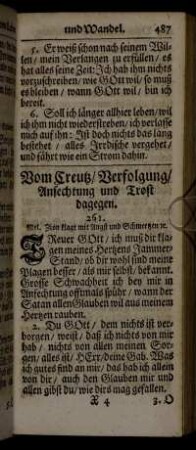 und Wandel. 487
5. Er weiß schon nach seinem Wil-
len / mein Verlangen zu erfüllen / es
hat alles seine Zeit: Ich hab ihm nichts
vorzuschreiben / wie GOtt wil / so muß
es bleiben / wann GOtt wil / bin ich
bereit.
6. Soll ich länger allhier leben / wil
ich ihm nicht wiederstreben / ich verlasse
mich auf ihn: Ist doch nichts das lang
bestehet / alles Irrdische vergehet /
und fährt wie ein Strom dahin.
Vom Creutz / Verfolgung /
Anfechtung und Trost
dagegen.
261.
Mel. Man klagt mit Angst und Schmertzen ꝛc.
TReuer GOtt / ich muß dir kla-
gen meines Hertzens Jammer-
Stand / ob dir wohl sind meine
Plagen besser / als mir selbst / bekannt.
Grosse Schwachheit ich bey mir in
Anfechtung offtmals spühr / wann der
Satan allen Glauben wil aus meinem
Hertzen rauben.
2. Du GOtt / dem nichts ist ver-
borgen / weist / daß ich nichts von mir
hab / nichts von allen meinen Sor-
gen / alles ist / HErr / deine Gab. Was
ich gutes find an mir / das hab ich allein
von dir / auch den Glauben mir und
allen gibst du / wie dirs mag gefallen.
X 4 3. O